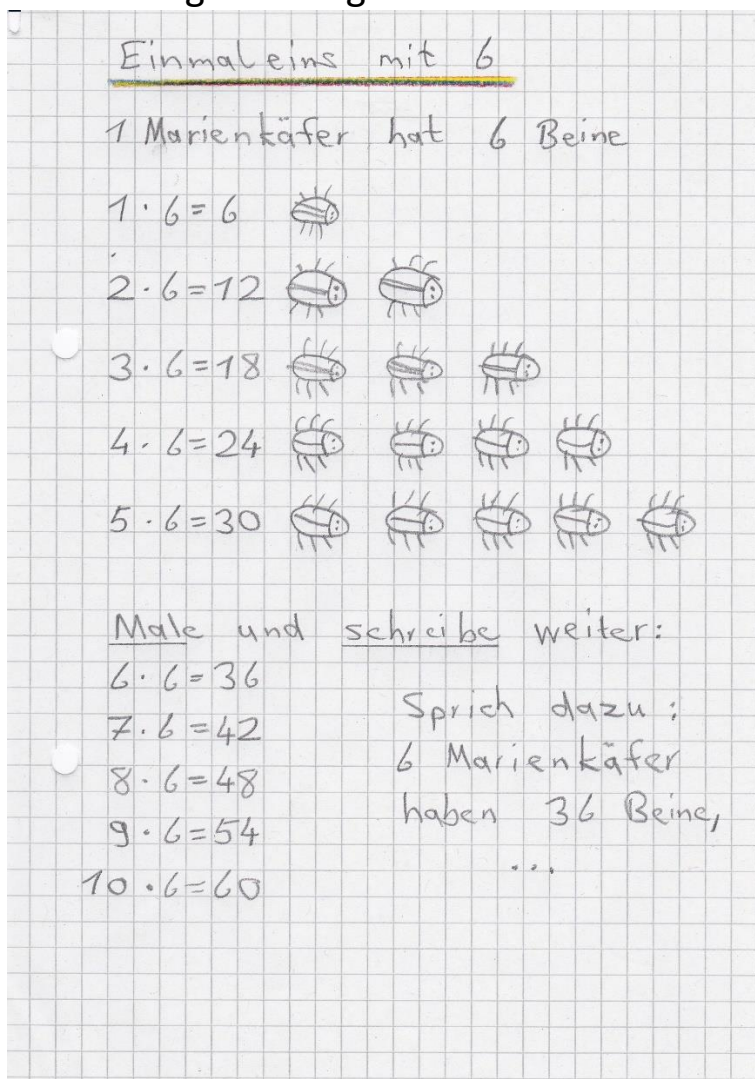 Einmaleins mit 6
1 Marienkäfer hat 6 Beine
1 · 6 = 6
2 · 6 = 12
3 · 6 = 18
4 · 6 = 24
5 · 6 = 30
Male und schreibe weiter:
6 · 6 = 36
7 · 6 = 42
8 · 6 = 48
9 · 6 = 54
10 · 6 = 60
Sprich dazu:
6 Marienkäfer
haben 36 Beine,
...